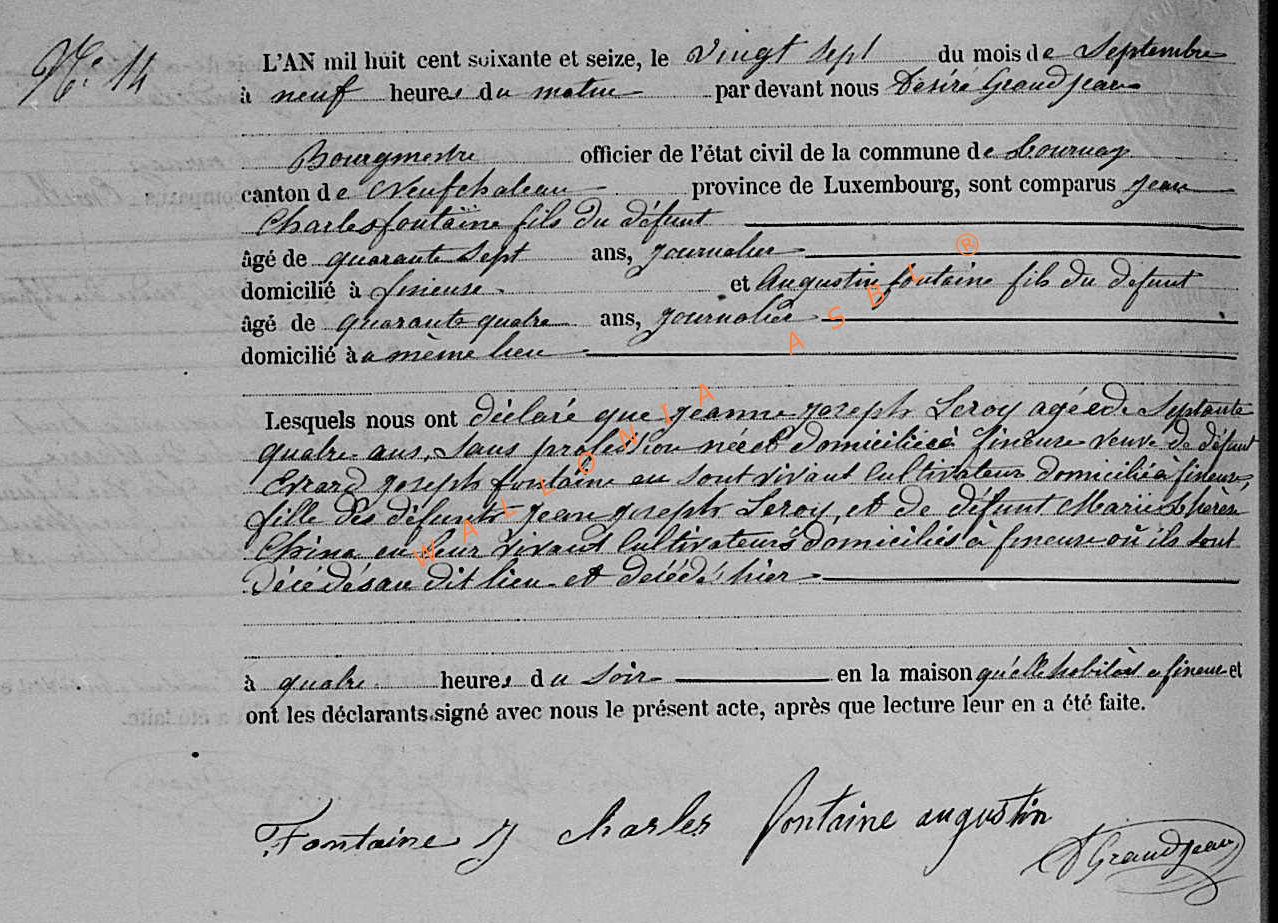 N.º 14
L'AN mil huit cent soixante et seize, le vingt sept du mois de Septembre
à neuf heures du matin par devant nous Désiré Grandjean
Bourgmestre officier de l'état civil de la commune de Tournay
canton de Neufchateau province de Luxembourg, sont comparus jean
Charles fontaine fils du défunt
âgé de quarante sept ans, journalier
domicilié à fineuse et Augustin fontaine fils du défunt
âgé de quarante quatre ans, journalier
domicilié à a même lieu
Lesquels nous ont déclaré que jeanne joseph Leroy agée de Septante
quatre ans, sans profession née et domiciliée à fineuse veuve de défunt
Evrard joseph fontaine en sont vivant cultivateur domicilié a fineuse,
fille des défunts jean joseph Leroy, et de défunt Marie thérèse
China en leur vivant cultivateurs domiciliés à fineuse où ils sont
décédés au dit lieu et décédé hier
à quatre heures du soir en la maison qu'elle habitait a fineuse et
ont les déclarants signé avec nous le présent acte, après que lecture leur en a été faite.
WALLONIA ASBL ®
Fontaine J Charles fontaine augustin
D Grandjean